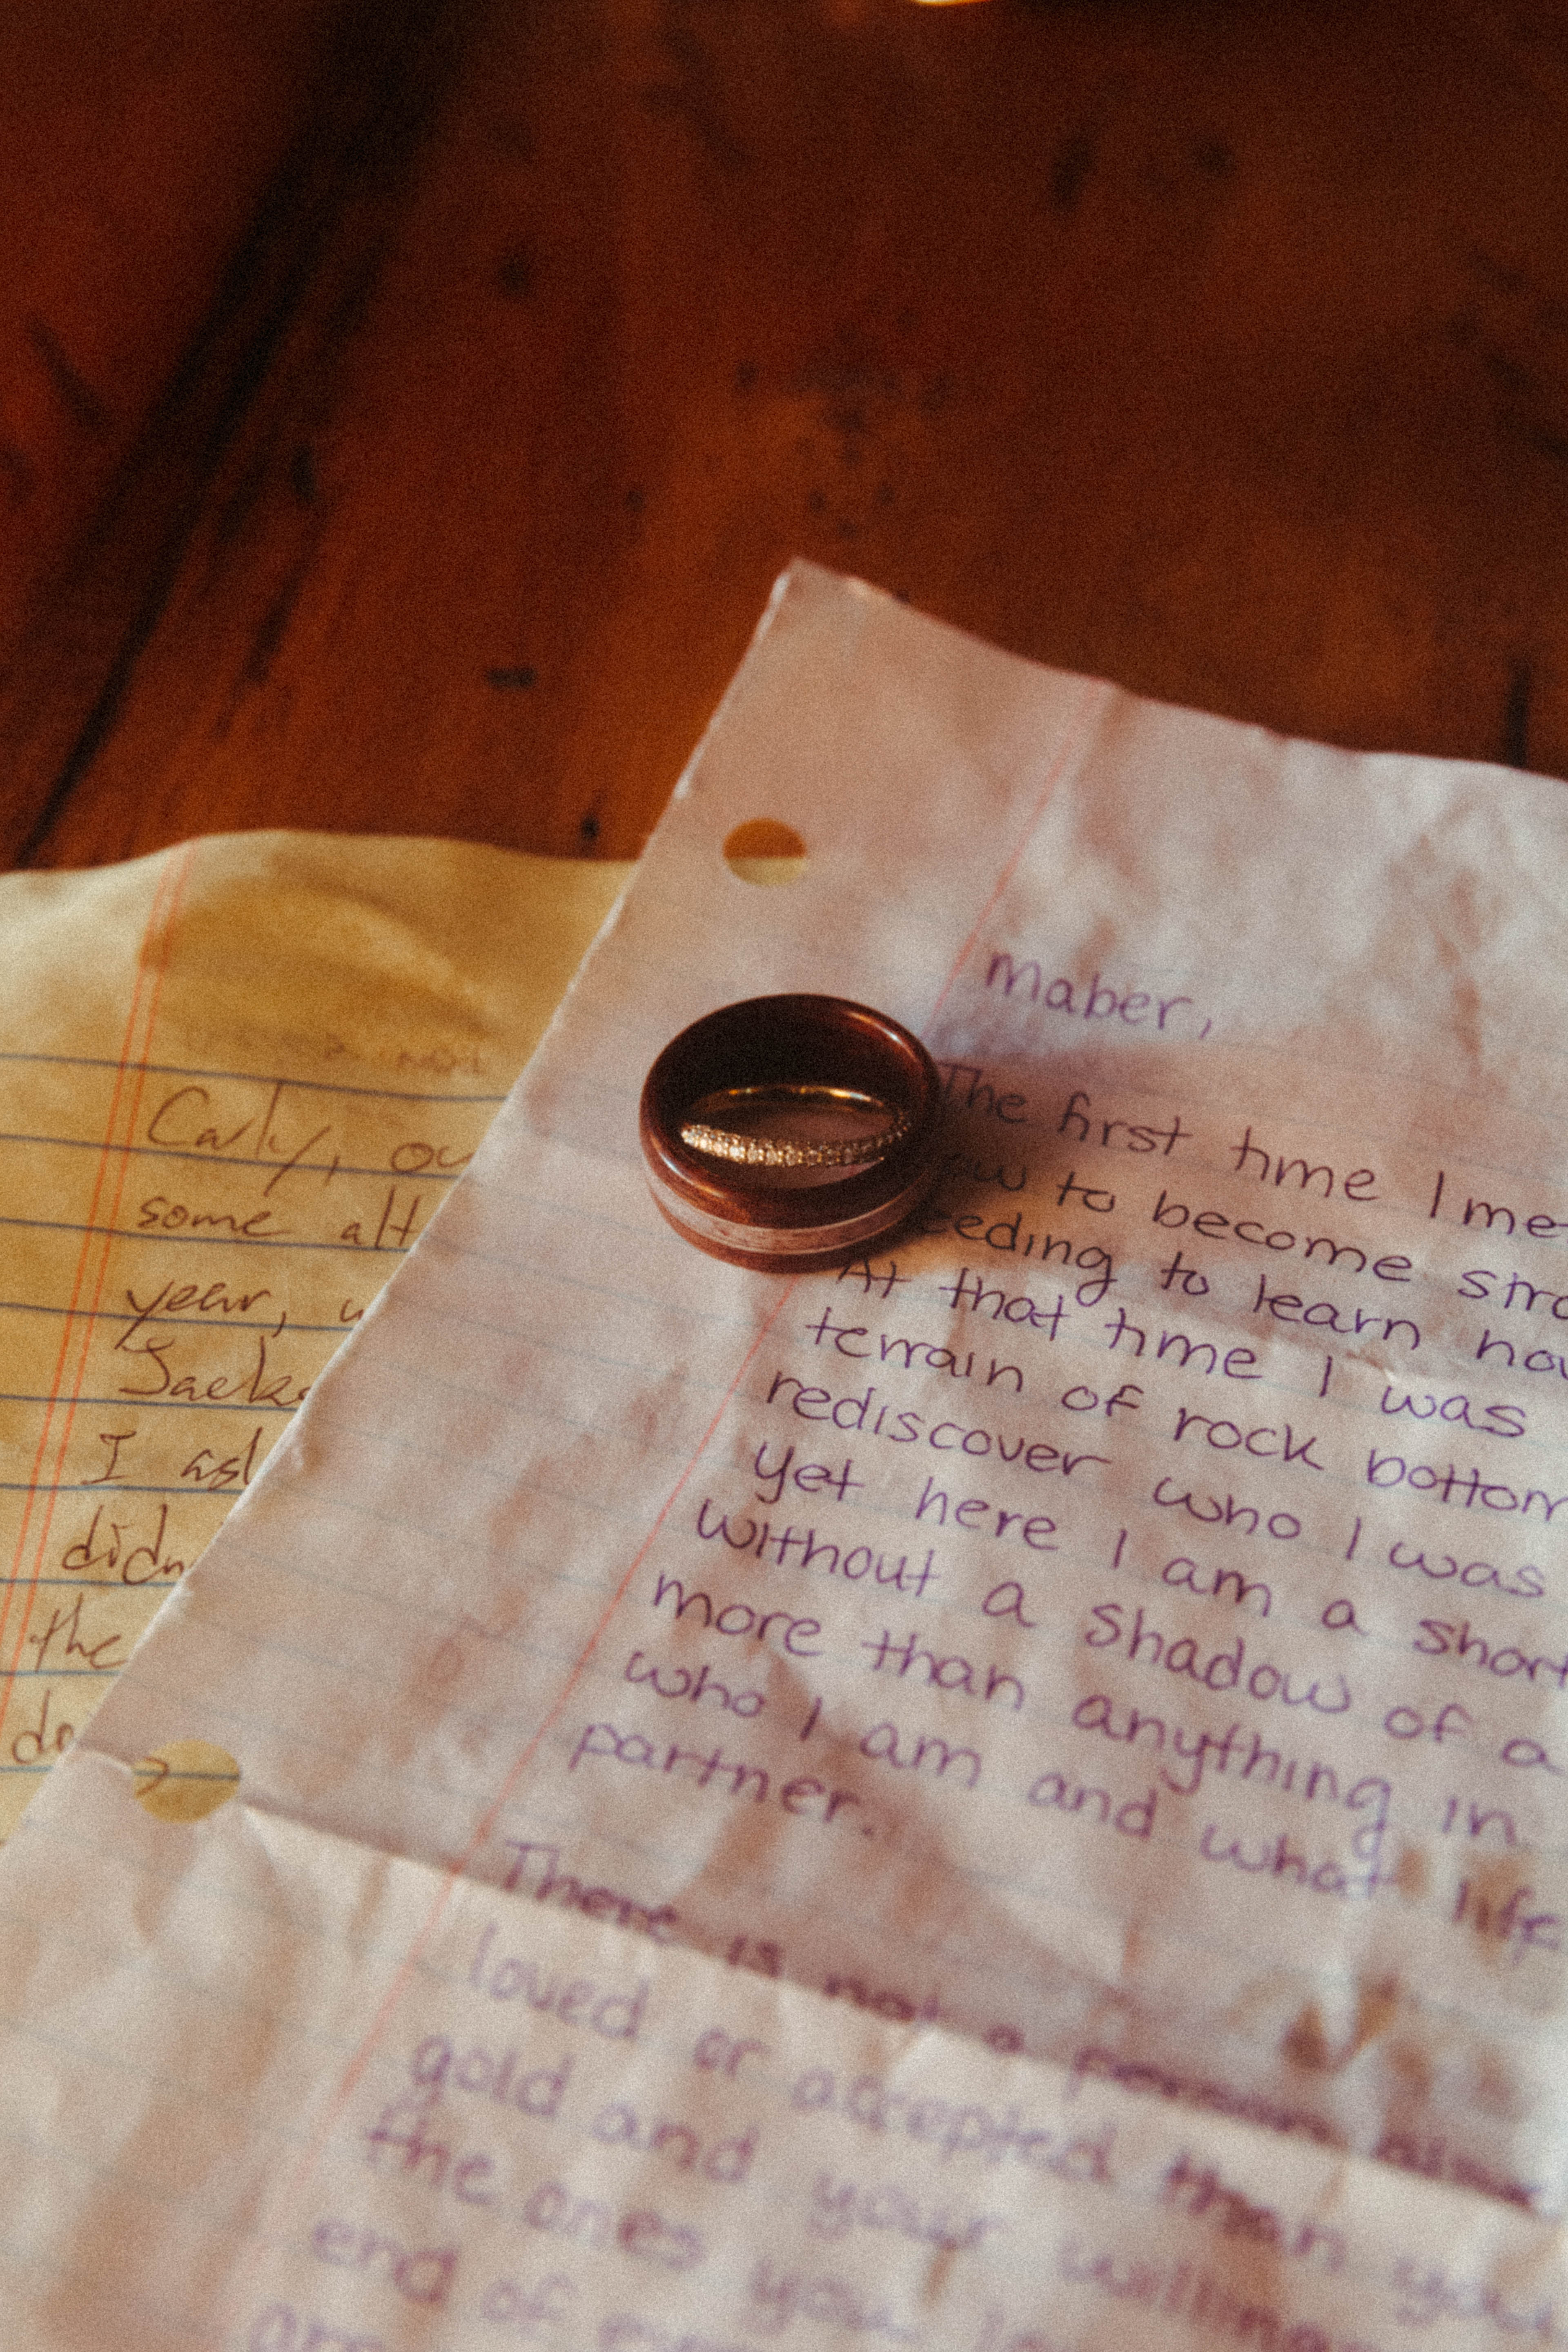 Carly, ou
some alt
year, u
Jacks
I as
didn
the
do
maber,
The first time I me
w to become stro
eeding to learn how
At that time I was
terrain of rock bottom
rediscover who I was
yet here I am a short
without a shadow of a
more than anything in
who I am and what life
partner.
There is not a person
loved or accepted than you
gold and your willing
the ones you
end of
are